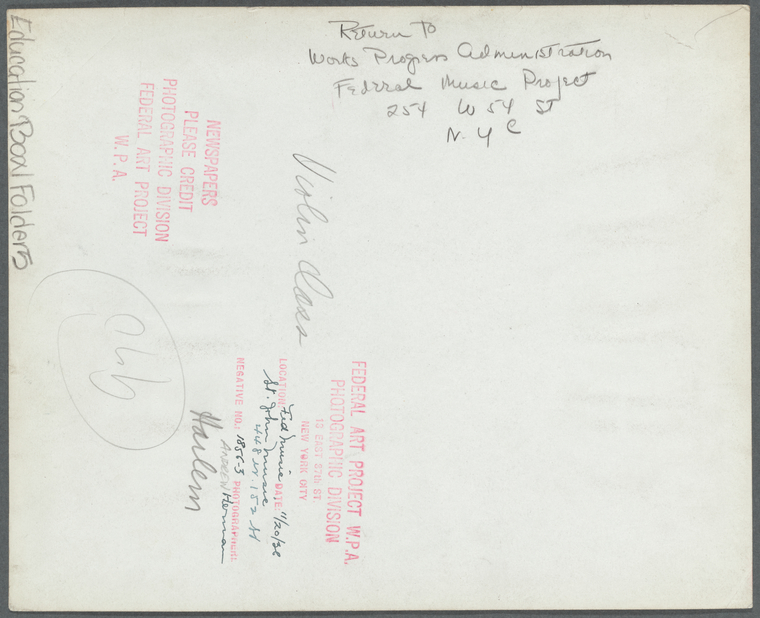 Return to
Works Progress Administration
Federal Music Project
254 W 54 St
N. Y C
Education Box 1 Folder 5
NEWSPAPERS
PLEASE CREDIT
PHOTOGRAPHIC DIVISION
FEDERAL ART PROJECT
W.P.A.
Violin Class
FEDERAL ART PROJECT W.P.A.
PHOTOGRAPHIC DIVISION
EAST 57th ST.
NEW YORK CITY
LOCATION: Fed Music DATE: 11/20/36
St. John Music
448 W. 152 St
NEGATIVE NO.: 1856-5 PHOTOGRAPHER:
ANDREW Herman
Harlem